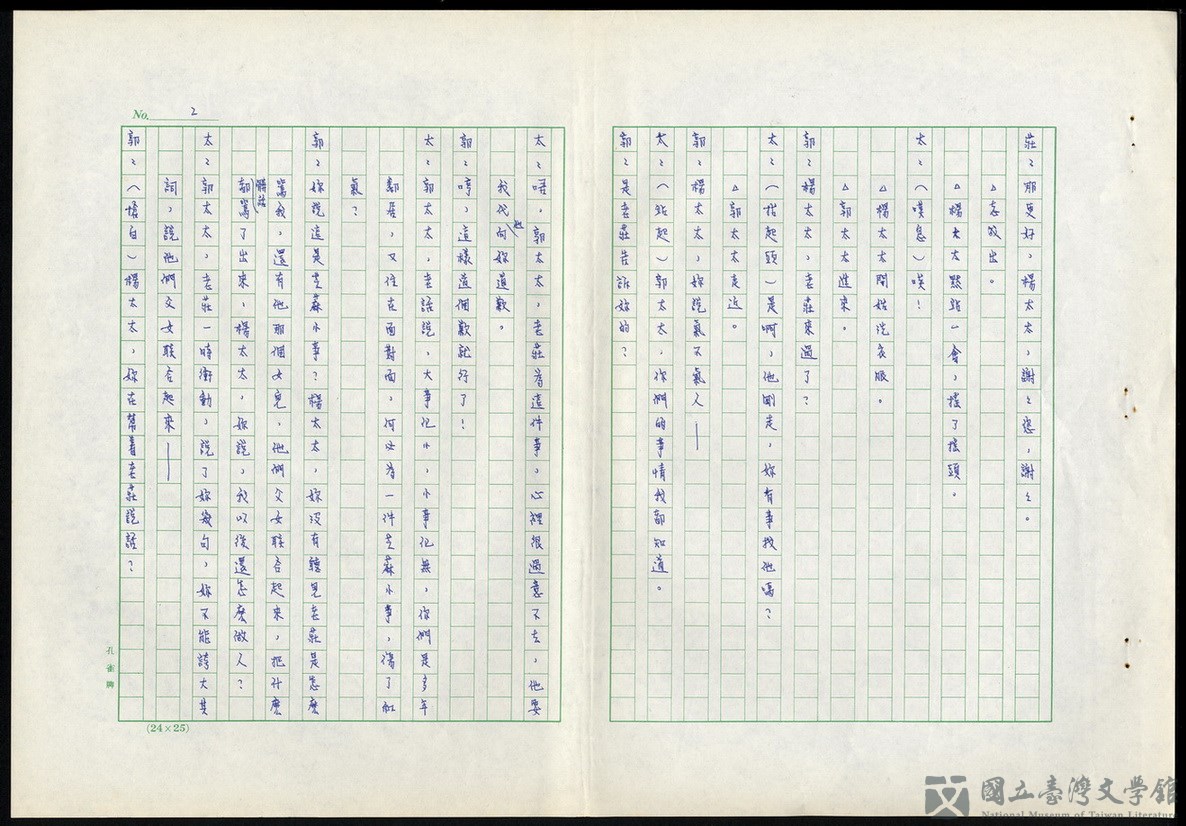 莊：那更好，楊太太，謝々您，謝々。
△志收出。
△楊太太默站一會，搖了搖頭。
太：（嘆息）唉！
△楊太太開始洗衣服。
△郭太太進來。
郭：楊太太，老莊來過了？
太：（抬起頭）是啊，他剛走，妳有事找他嗎？
△郭太太走近。
郭：楊太太，妳說氣不氣人——
太：（站起）郭太太，你們的事情我都知道。
郭：是老莊告訴妳的？
太：唔，郭太太，老莊為這件事，心裡很過意不去，他要
我代他向妳道歉。
郭：哼，這樣道個歉就行了！
太：郭太太，老話說，大事化小，小事化無，你們是多年
鄰居，又住在面對面，何必為一件芝蔴小事，傷了和
氣？
郭：妳說這是芝蔴小事？楊太太，妳沒有聽見老莊是怎麼
罵我，還有他那個女兒，他們父女联合起來，把什麼
髒話都罵了出來，楊太太，妳說，我以後還怎麼做人？
太：郭太太，老莊一時衝動，說了妳幾句，妳不能誇大其
詞，說他們父女联合起來——
郭：（搶白）楊太太，妳在幫着老莊說話？
No. 2
(24×25)
孔雀牌
國立臺灣文學館
National Museum of Taiwan Literature